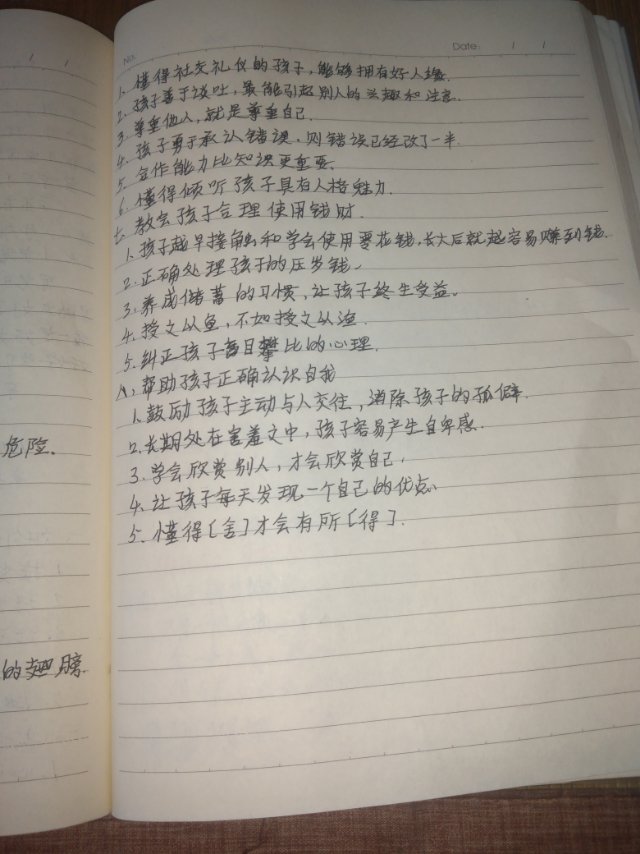 No.
Date: / /
1. 懂得社交礼仪的孩子，能够拥有好人缘.
2. 孩子善于谈吐，最能引起别人的兴趣和注意.
3. 尊重他人，就是尊重自己.
4. 孩子勇于承认错误，则错误已经改了一半.
5. 合作能力比知识更重要.
6. 懂得倾听孩子具有人格魅力.
七. 教会孩子合理使用钱财.
1. 孩子越早接触和学会使用零花钱，长大后就越容易赚到钱.
2. 正确处理孩子的压岁钱.
3. 养成储蓄的习惯，让孩子终生受益。
4. 授之以鱼，不如授之以渔.
5. 纠正孩子盲目攀比的心理.
八，帮助孩子正确认识自我
1. 鼓励孩子主动与人交往，消除孩子的孤僻.
2. 长期处在害羞之中，孩子容易产生自卑感.
3. 学会欣赏别人，才会欣赏自己.
4. 让孩子每天发现一个自己的优点.
5. 懂得[舍]才会有所[得].
危险.
的翅膀.